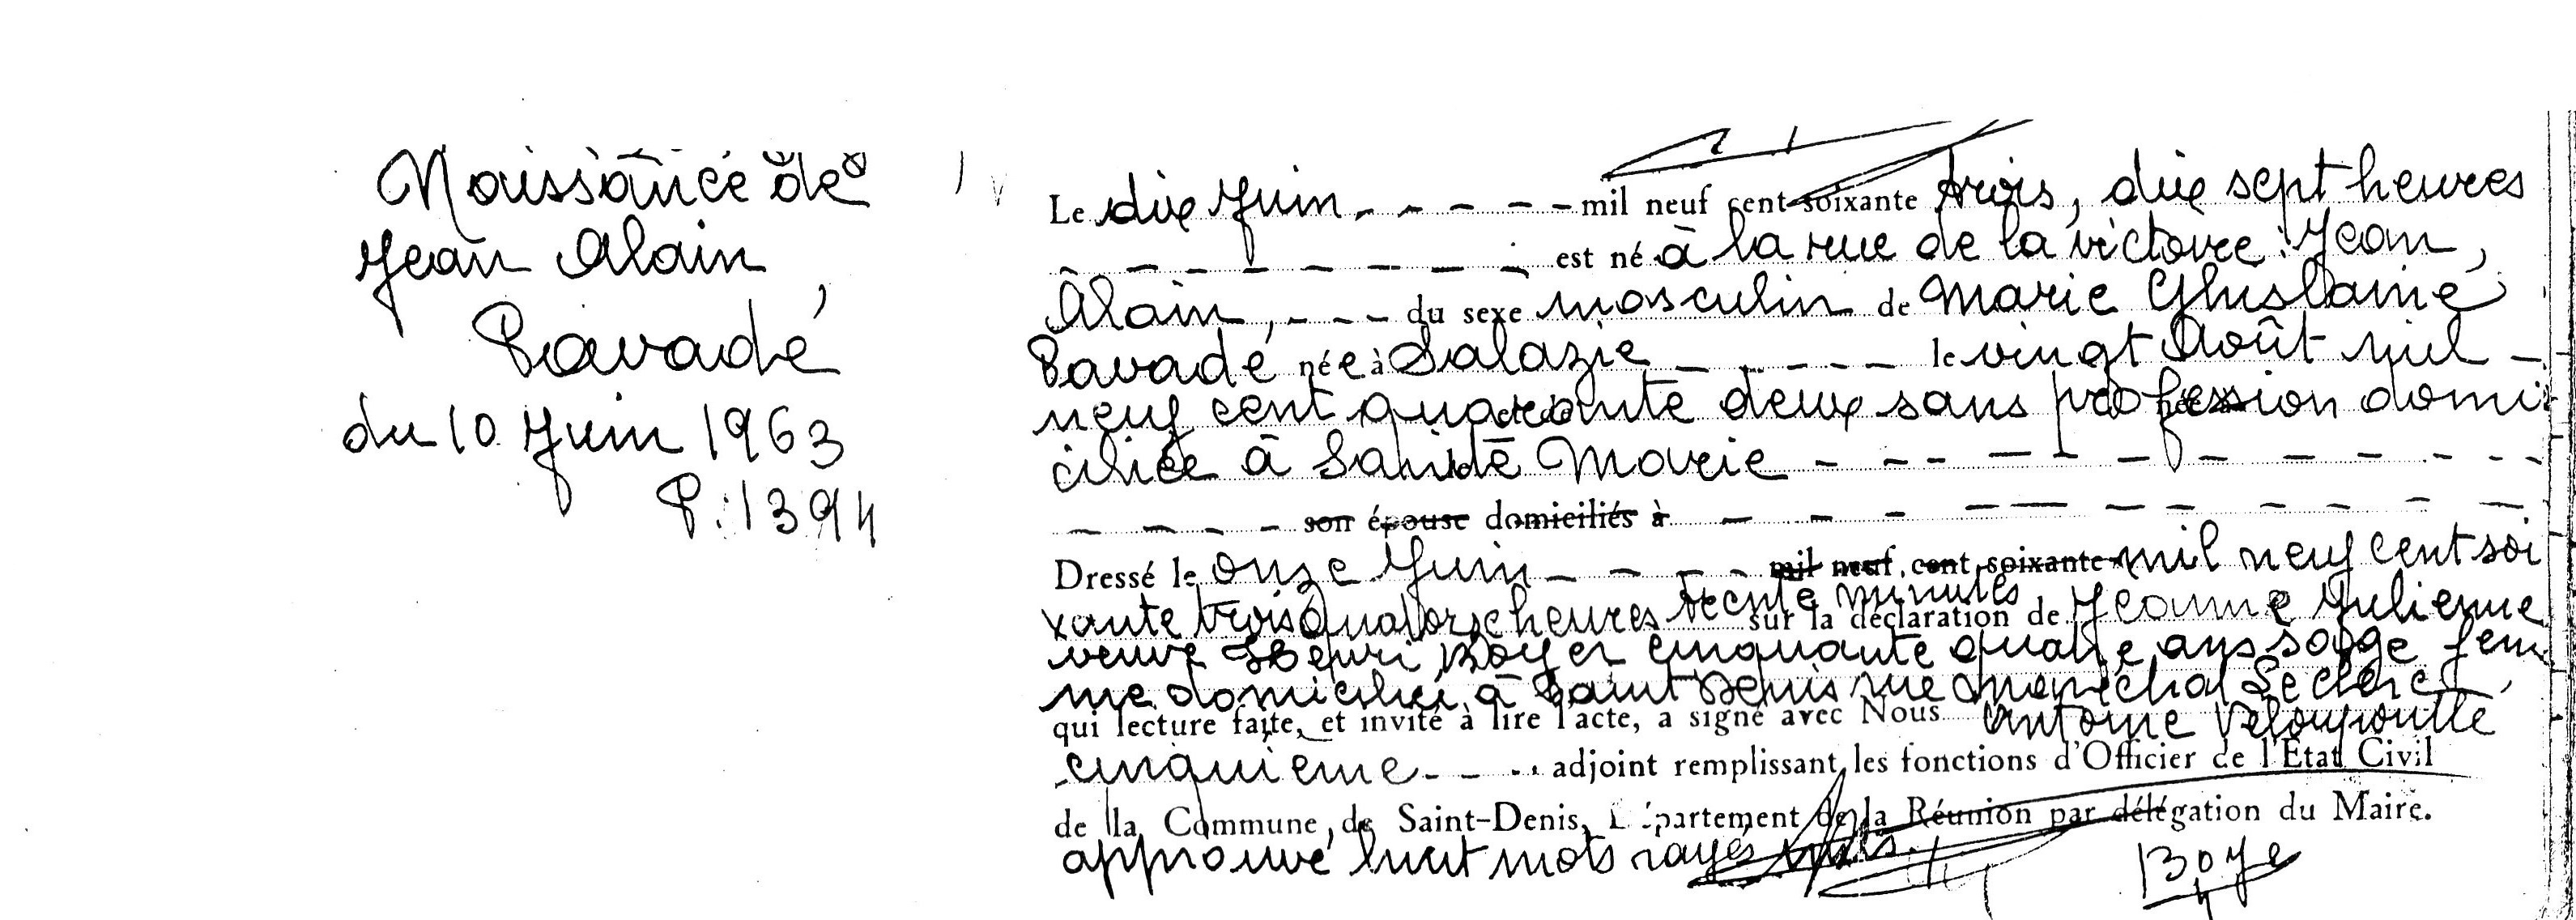 Naissance de
Jean Alain
Pavadé
du 10 Juin 1963
P. 1394
Le dix Juin - - - - - mil neuf cent soixante trois, dix sept heures
- - - - - - - - est né à la rue de la victoire : Jean,
Alain, - - - du sexe masculin de Marie Ghislaine
Pavadé née à Salazie - - - - - le vingt Août mil -
neuf cent quarante deux sans profession domi
ciliée à Sainte Marie - - - - - - - - - -
- - - - son épouse domiciliés à - - - - - - - - -
Dressé le onze Juin - - - - mil neuf cent soixante mil neuf cent soi
xante trois Quatorze heures trente minutes sur la déclaration de Jeanne Julienne
veuve Henri Boyer cinquante quatre ans sage fem
me domiciliée à Saint Denis rue Maréchal Leclerc,
qui lecture faite, et invité à lire l'acte, a signé avec Nous Antoine Véloupoullé
cinquième - - - adjoint remplissant les fonctions d'Officier de l'Etat Civil
de la Commune de Saint-Denis, Département de la Réunion par délégation du Maire.
approuvé huit mots rayés nuls.
Boye